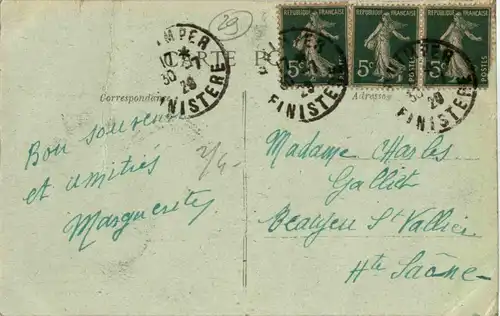 29
CARTE P
QUIMPER
10 * 
30 -7
20
FINISTERE
RÉPUBLIQUE FRANÇAISE
5c
POSTES
RÉPUBLIQUE FRANÇAISE
5c
POSTES
RÉPUBLIQUE FRANÇAISE
5c
POSTES
QUIMPER
FINISTERE
QUIMPER
20
FINISTERE
Correspondance
Adresse
Bon souvenir
et amitiés
Marguerite
Madame Charles
Galliot
Beaujeu St Vallier
Hte Saône